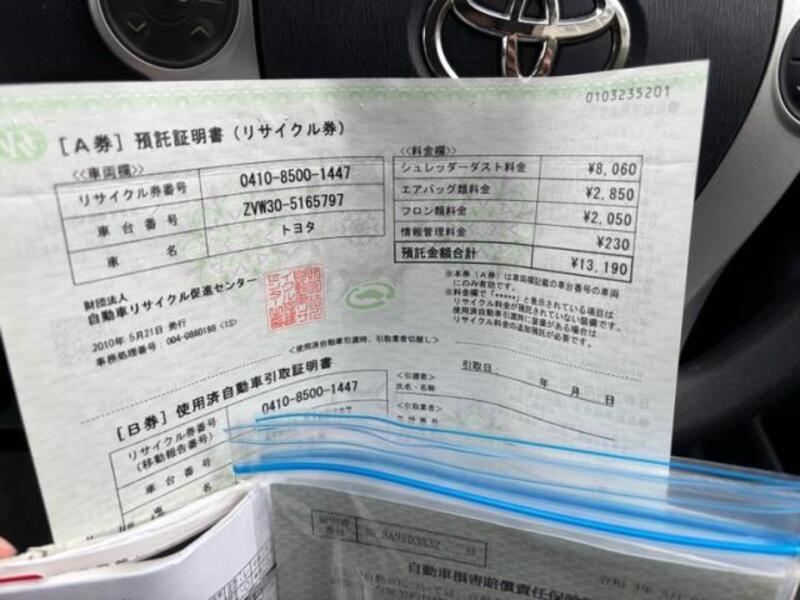 0103235201
[A券] 預託証明書(リサイクル券)
<<車両欄>>
リサイクル券番号 0410-8500-1447
車台番号 ZVW30-5165797
車名 トヨタ
<<料金欄>>
シュレッダーダスト料金 ¥8,060
エアバッグ類料金 ¥2,850
フロン類料金 ¥2,050
情報管理料金 ¥230
預託金額合計 ¥13,190
※本券(A券)は車両欄記載の車台番号の車両
にのみ有効です。
※料金欄で「*****」と表示されている項目は
リサイクル料金が預託されていない装備です。
使用済自動車引渡時に装備がある場合は
リサイクル料金の追加預託が必要です。
財団法人
自動車リサイクル促進センター
2010年 5月21日 発行
事務処理番号:
<使用済自動車引渡時、引取業者切離し>
[B券] 使用済自動車引取証明書
リサイクル券番号 0410-8500-1447
(移動報告番号)
車台番号
車名
引取日: 年 月 日
<引渡者>
氏名・名称
<引取業者>
証明書
番号
自動車損害賠償責任保険
令和 3年 5月